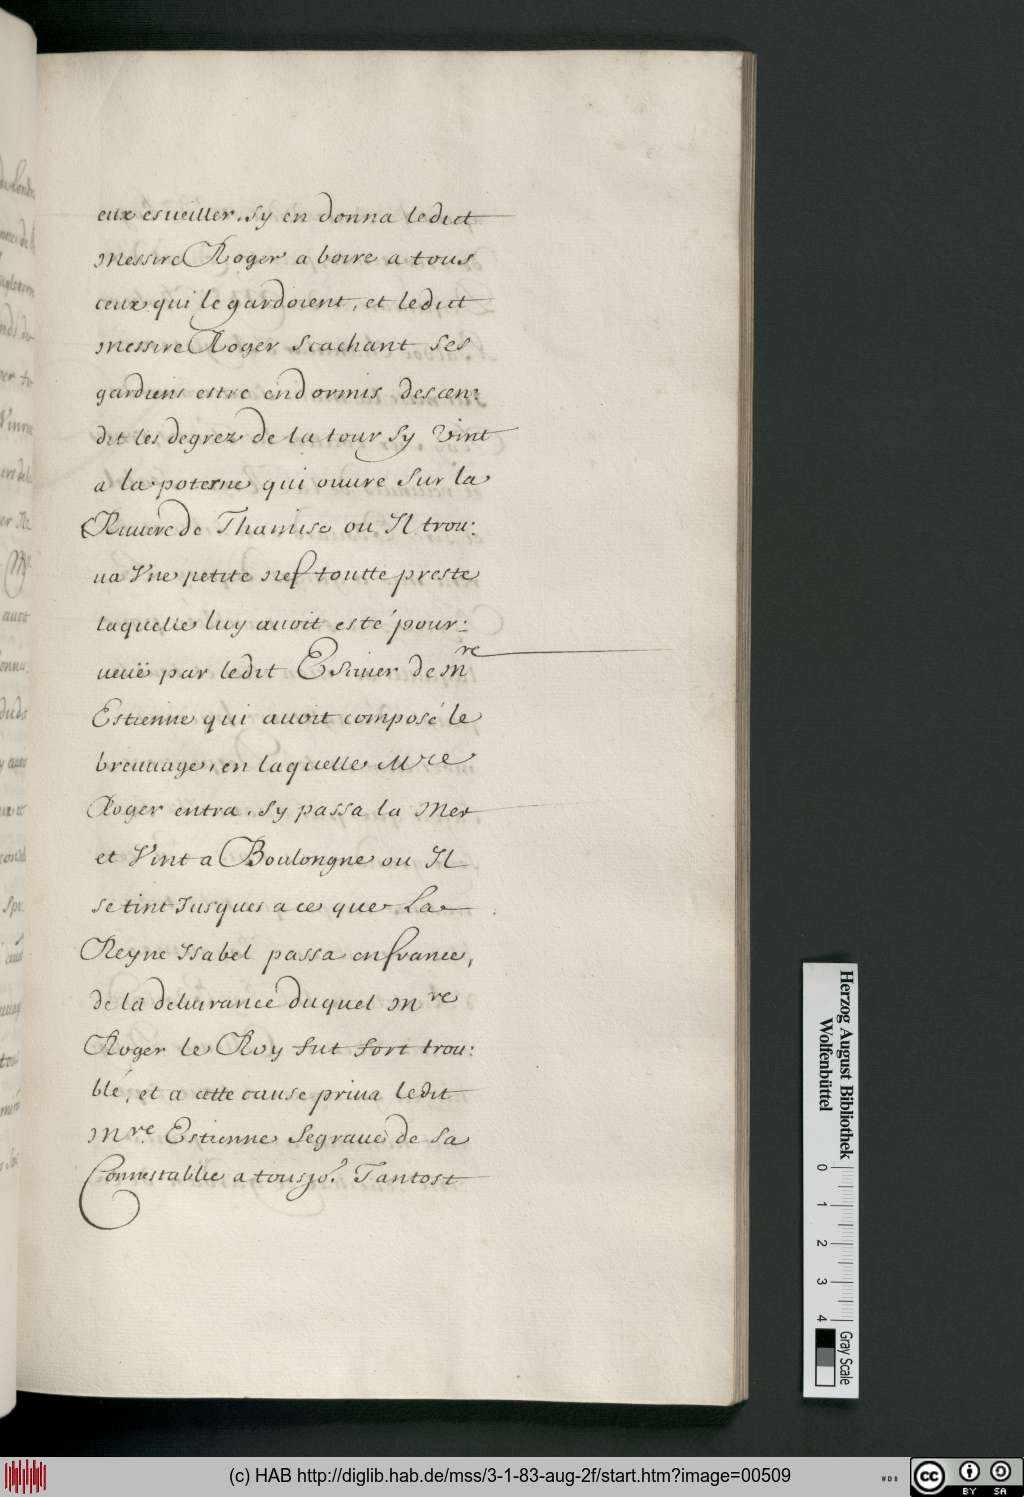 eux esueiller. Sy en donna ledict
Messire Roger a boire a tous
ceux qui le gardoient, et ledict
Messire Roger scachant ses
gardiens estre endormis descen:
dit les degrez de la tour sy vint
a la poterne qui ouure sur la
Riuiere de Thamise ou Il trou:
ua Vne petite nef toutte preste
laquelle luy auoit esté pour:
ueuë par ledit Escuier de mre
Estienne qui auoit composé le
breuuage, en laquelle Mre
Roger entra. Sy passa la Mer
et Vint a Boulongne ou Il
se tint Jusques a ce que La
Reyne Isabel passa en france,
de la deliurance duquel Mre
Roger le Roy fut fort trou:
blé, et a cette cause priua ledit
Mre Estienne Segraue de sa
Connestablie a tousjo.r Tantost
Herzog August Bibliothek
Wolfenbüttel
0 1 2 3 4
Gray Scale
(c) HAB http://diglib.hab.de/mss/3-1-83-aug-2f/start.htm?image=00509
WDB
cc BY SA